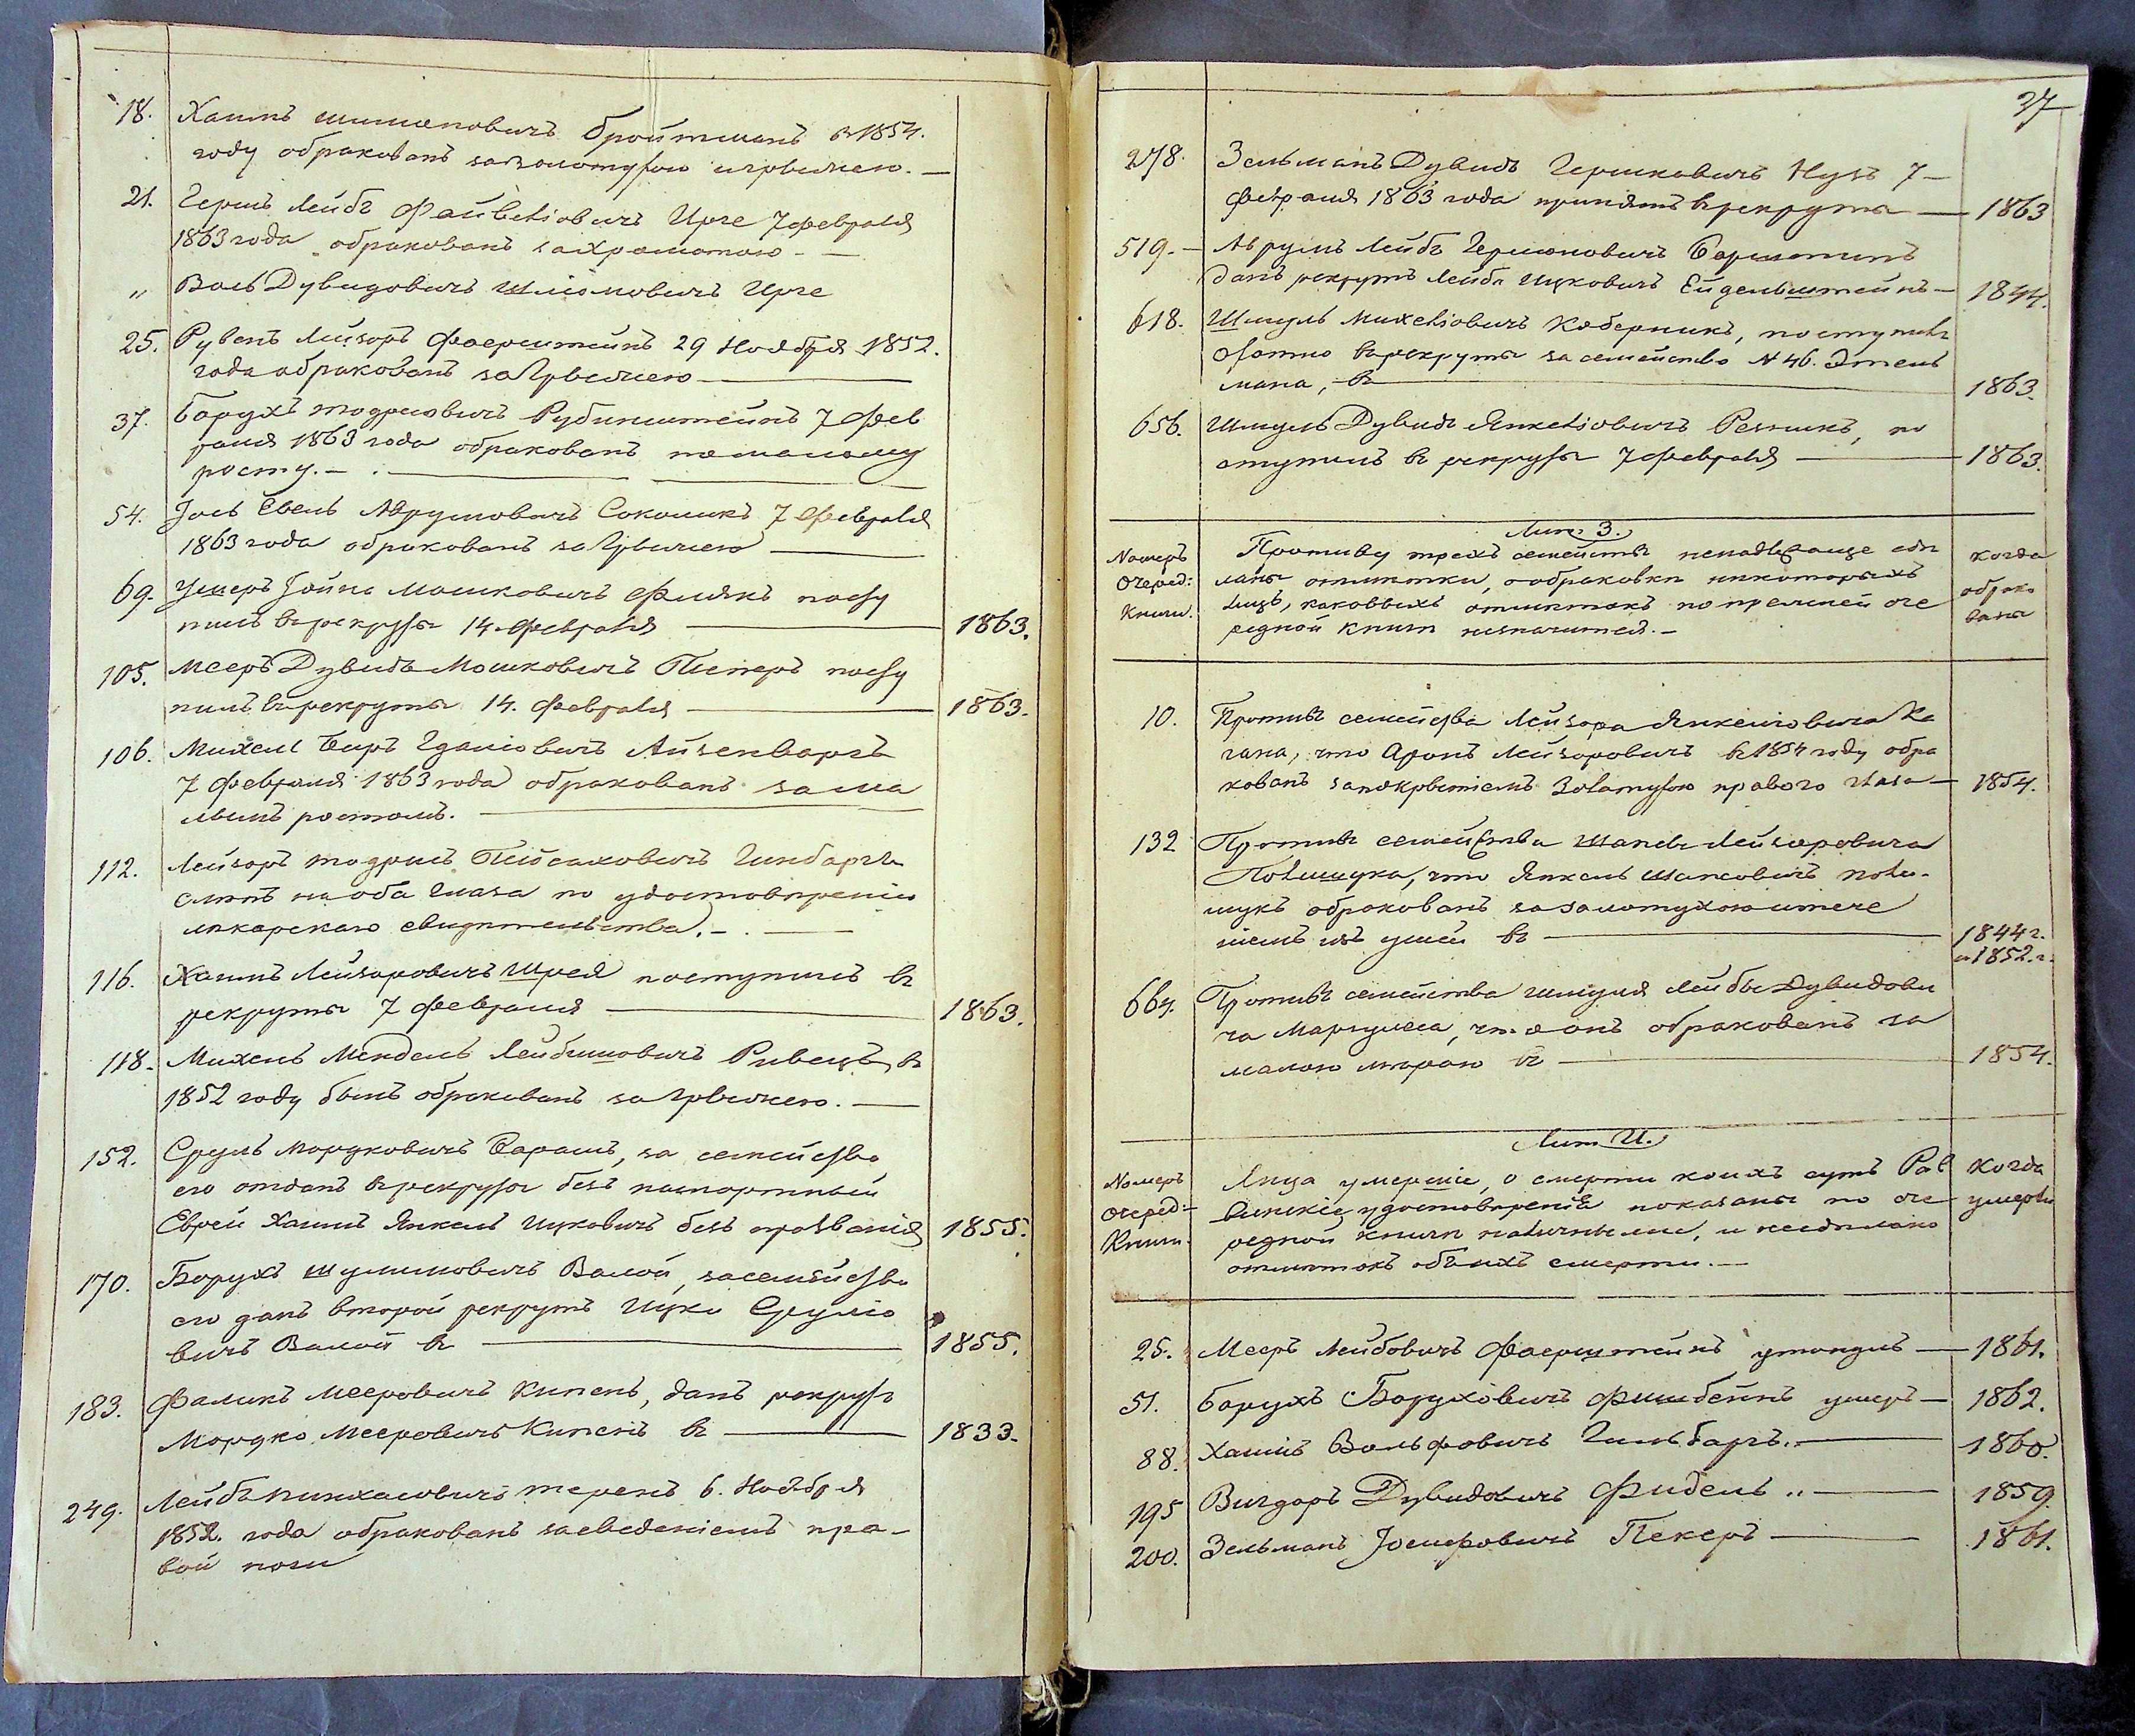 18. Хаимъ Шимоновичъ Бройтманъ въ 1854.
году обракованъ за золотухою и грыжею. —
21. Гершъ Лейбъ Файвелiовичъ Ирге 7 февраля
1863 года обракованъ за хромотою. —
„ Воль Дувидовичъ Шлiомовичъ Ирге
25. Рувенъ Лейзоръ Фаерштейнъ 29 Ноября 1852.
года обракованъ за грыжею —
37. Борухъ Тодресовичъ Рубинштейнъ 7 Фев
раля 1863 года обракованъ по малому
росту. —
54. Iось Евель Аврумовичъ Соколикъ 7 Февраля
1863 года обракованъ за грыжею —
69. Умеръ Iойна Мошковичъ Флякъ посту
пилъ въ рекруты 14. февраля — 1863.
105. Мееръ Дувидъ Мошковичъ Питеръ посту
пилъ въ рекруты 14. февраля — 1863.
106. Михель Беръ Гдалiовичъ Айзенбаргъ
7 февраля 1863 года обракованъ за ма
лымъ ростомъ. —
112. Лейзоръ Тодрисъ Пейсаховичъ Гинбаргъ
слѣпъ на оба глаза по удостовѣренiю
лѣкарскаго свидѣтельства. —
116. Хаимъ Лейзоровичъ Шрея поступилъ въ
рекруты 7 февраля — 1863.
118. Михель Мендель Лейбишовичъ Ривецъ въ
1852 году былъ обракованъ за грыжею. —
152. Сруль Мордковичъ Барашъ, за семейство
его отданъ въ рекруты безъ паспортный
Еврей Хаимъ Янкель Ицковичъ безъ прозванiя 1855.
170. Борухъ Шулимовичъ Валой, за семейство
его данъ второй рекрутъ Ицко Срулiо
вичъ Валой въ — 1855.
183. Фаликъ Мееровичъ Кипенъ, данъ рекрутъ
Мордко Мееровичъ Кипенъ въ — 1833.
249. Лейбъ Пинхасовичъ Теренъ 6. Ноября
1852. года обракованъ за сведенiемъ пра-
вой ноги
27
278. Зельманъ Дувидъ Гершковичъ Нузъ 7 —
февраля 1863 года принятъ въ рекруты — 1863
519. — Аврумъ Лейбъ Гершоновичъ Борштинъ
данъ рекрутъ Лейба Ицковичъ Ейдельштейнъ — 1844.
618. Шмуль Михелiовичъ Коберникъ, поступилъ
охотно въ рекруты за семейство № 46. Этель
мана, въ — 1863.
656. Шмуль Дувидъ Янкелiовичъ Резникъ, по
ступилъ въ рекруты 7 февраля — 1863.
Лит. З.
Номеръ Очеред: Книги.
Противу трехъ семействъ ненадлежаще сдѣ
ланы отмѣтки, о обраковкѣ нѣкоторыхъ
лицъ, каковыхъ отмѣтокъ по прежней оче
редной книгѣ незначится. —
когда обрако ваны
10. Противъ семейства Лейзора Янкелiовича Ка
гана, что Аронъ Лейзоровичъ въ 1854 году обра
кованъ за покрытiемъ Золотухою праваго глаза — 1854.
132 Противъ семейства Шапсы Лейзоровича
Полищука, что Янкель Шапсовичъ Поли-
щукъ обракованъ за золотухою и тече
нiемъ изъ ушей въ — 1844 г.
и 1852. г.
664. Противъ семейства Шмуля Лейбы Дувидови
ча Маргулеса, что онъ обракованъ за
малою мѣрою въ — 1854.
Лит. И.
Номеръ Очеред: Книги.
Лица умершiе, о смерти коихъ суть Рав
винскiе удостовѣренiя показаны по оче
редной книгѣ наличными, и несдѣлано
отмѣтокъ объ ихъ смерти. —
когда умерли
25. Мееръ Лейбовичъ Фаерштейнъ утонулъ — 1861.
51. Борухъ Боруховичъ Фишбейнъ умеръ — 1862.
88. Хаимъ Вольфовичъ Гильбаргъ „ — 1860.
195 Вигдоръ Дувидовичъ Фидель „ — 1859.
200. Зельманъ Iосифовичъ Пекеръ — 1861.